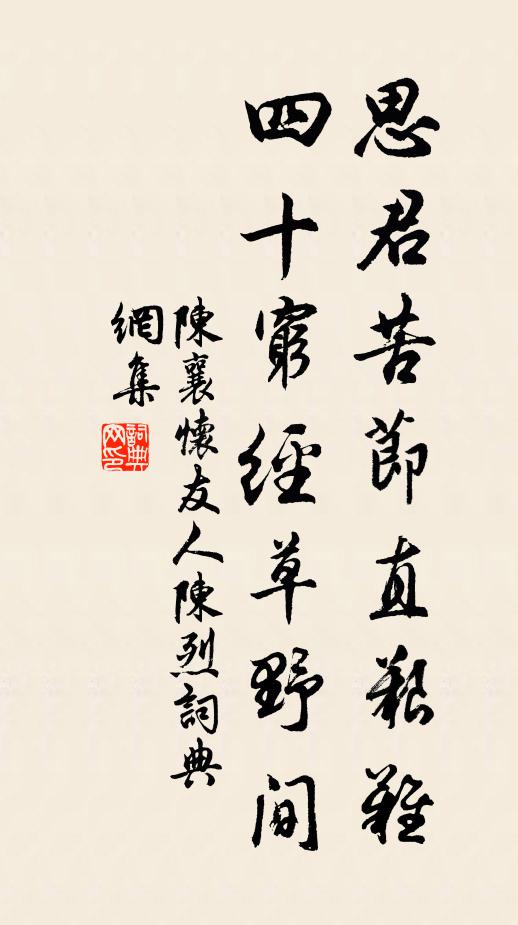 思君苦節直艱難
四十窮經草野間
陳襄懷友人陳烈詞典
網集
詞典
网印